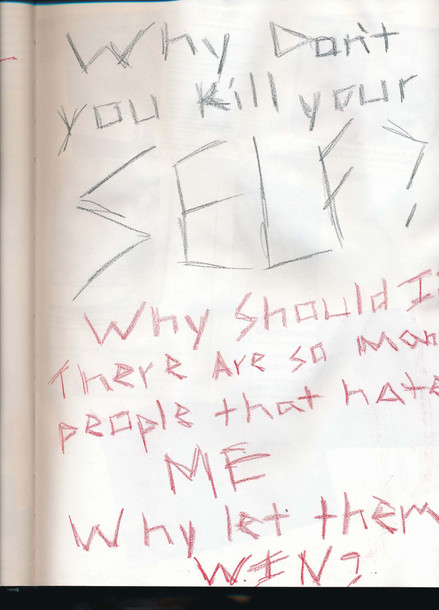 Why Don't
you kill your
SELF?
Why Should I?
There Are so man
people that hate
ME
Why let them
WIN?